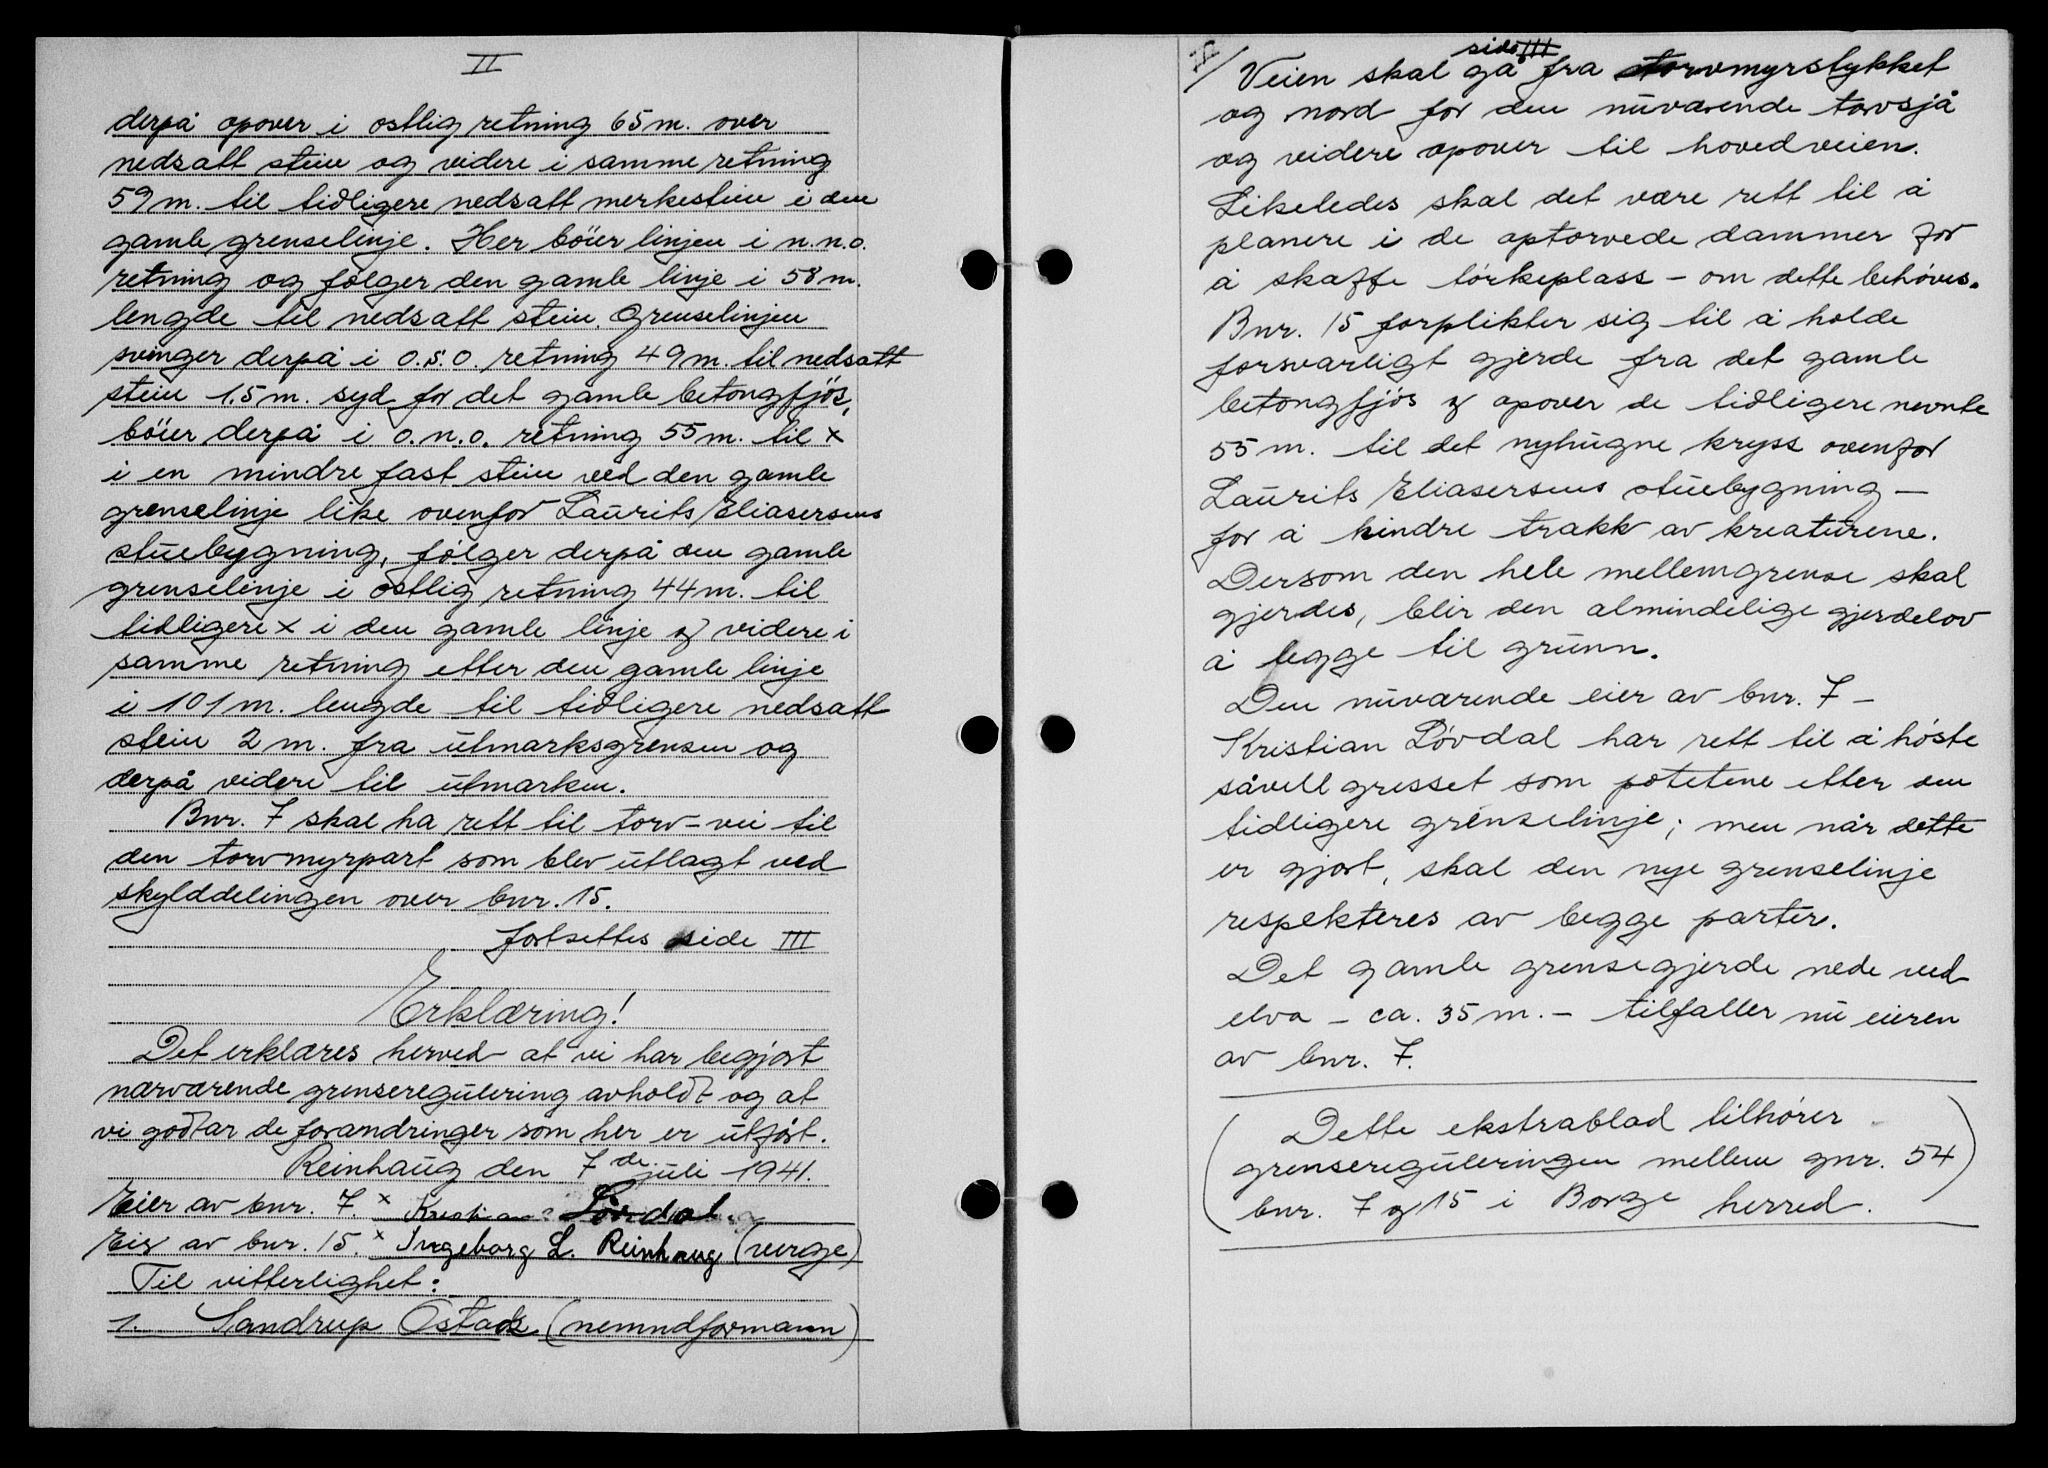 II
derpå opover i ostlig retning 65 m. over
nedsatt stein og videre i samme retning
59 m. til tidligere nedsatt merkestein i den
gamle grenselinje. Her böier linjen i n.n.o.
retning og fölger den gamle linje i 58 m.
lengde til nedsatt stein. Grenselinjen
svinger derpå i o.s.o. retning 49 m. til nedsatt
stein 1.5 m. syd for det gamle betongfjös,
böier derpå i o.n.o. retning 55 m. til x
i en mindre fast stein ved den gamle
grenselinje like ovenfor Laurits Eliasersens
stuebygning, fölger derpå den gamle
grenselinje i ostlig retning 44 m. til
tidligere x i den gamle linje og videre i
samme retning etter den gamle linje
i 101 m. lengde til tidligere nedsatt
stein 2 m. fra utmarksgrensen og
derpå videre til utmarken.
Bnr. 7 skal ha rett til torv-vei til
den torvmyrpart som blev utlagt ved
skylddelingen over bnr. 15.
fortsettes side III
Erklæring!
Det erklæres herved at vi har begjært
nærværende grenseregulering avholdt og at
vi godtar de forandringer som her er utfört.
Reinhaug den 7de juli 1941.
Eier av bnr. 7. x Kristian Lövdal
Eier av bnr. 15. x Ingeborg L. Reinhaug (verge)
Til vitterlighet:
1. Sandrup Ostad (nemndformann)
side III
Veien skal gå fra torvmyrstykket
og nord for den nuværende torvsjå
og videre opover til hovedveien.
Likeledes skal det være rett til å
planere i de optorvede dammer for
å skaffe törkeplass - om dette behöves.
Bnr. 15 forplikter sig til å holde
forsvarligt gjerde fra det gamle
betongfjös og opover de tidligere nevnte
55 m. til det nyhugne kryss ovenfor
Laurits Eliasersens stuebygning -
for å hindre trakk av kreaturene.
Dersom den hele mellemgrense skal
gjerdes, blir den almindelige gjerdelov
å legge til grunn.
Den nuværende eier av bnr. 7 -
Kristian Lövdal har rett til å höste
såvell gresset som potetene etter den
tidligere grenselinje; men når dette
er gjort, skal den nye grenselinje
respekteres av begge parter.
Det gamle grensegjerde nede ved
elva - ca. 35 m. - tilfaller nu eieren
av bnr. 7.
(Dette ekstrablad tilhörer
grensereguleringen mellem gnr. 54
bnr. 7 og 15 i Borge herred.)